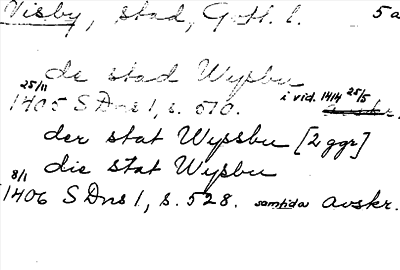 Visby, stad, Gotl. l. 5a
de stad Wysbu
25/11 1405 SDns 1, s. 510. i vid. 1414 25/5 avskr.
der stat Wyssbu [2 ggr]
die stat Wysbu
8/1 1406 SDns 1, s. 528. samtida avskr.